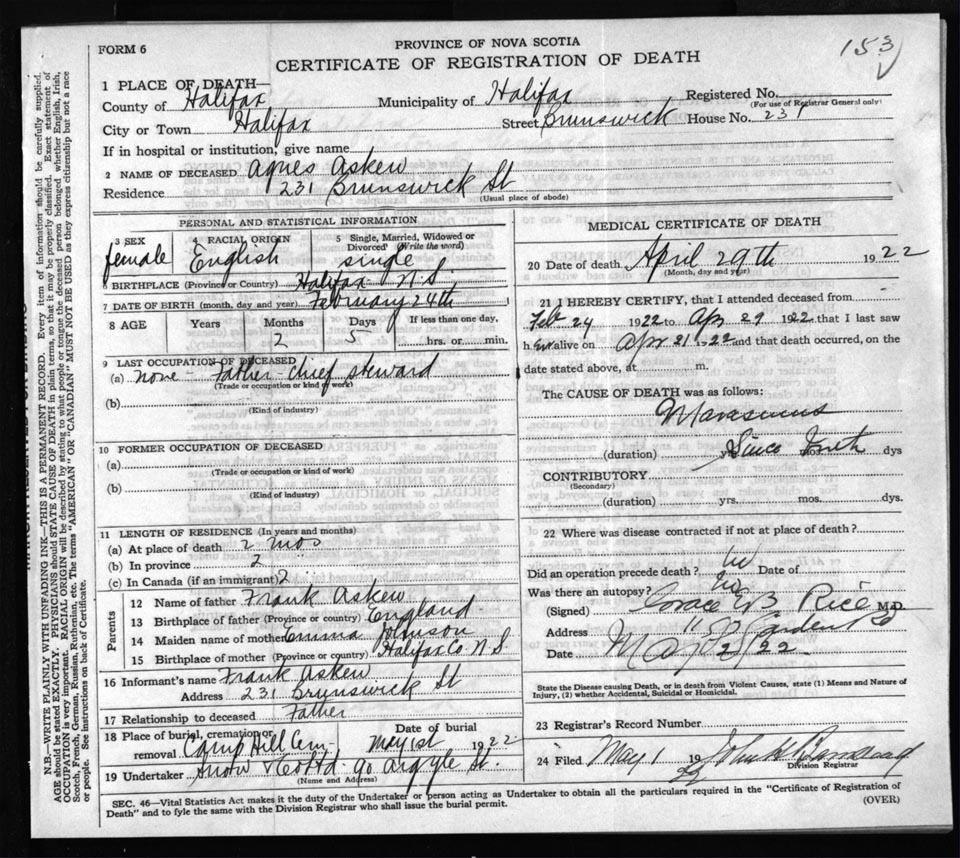 FORM 6
PROVINCE OF NOVA SCOTIA
CERTIFICATE OF REGISTRATION OF DEATH
153
1 PLACE OF DEATH—
County of Halifax Municipality of Halifax Registered No.
(For use of Registrar General only)
City or Town Halifax Street Brunswick House No. 231
If in hospital or institution, give name
2 NAME OF DECEASED Agnes Askew
Residence 231 Brunswick St
(Usual place of abode)
PERSONAL AND STATISTICAL INFORMATION
3 SEX 4 RACIAL ORIGIN 5 Single, Married, Widowed or Divorced (Write the word)
female English single
6 BIRTHPLACE (Province or Country) Halifax N.S.
7 DATE OF BIRTH (month, day and year) February 24th
8 AGE Years Months Days If less than one day,
2 5 hrs. or min.
9 LAST OCCUPATION OF DECEASED
(a) none Father chief steward
(Trade or occupation or kind of work)
(b)
(Kind of industry)
10 FORMER OCCUPATION OF DECEASED
(a)
(Trade or occupation or kind of work)
(b)
(Kind of industry)
11 LENGTH OF RESIDENCE (In years and months)
(a) At place of death 2 mos
(b) In province 2
(c) In Canada (if an immigrant) 2
Parents
12 Name of father Frank Askew
13 Birthplace of father (Province or country) England
14 Maiden name of mother Emma Johnson
15 Birthplace of mother (Province or country) Halifax Co. N.S
16 Informant's name Frank Askew
Address 231 Brunswick St
17 Relationship to deceased Father
18 Place of burial, cremation or removal Camp Hill Cem Date of burial May 1st 1922
19 Undertaker Snow & Co Ltd. 90 Argyle St.
(Name and Address)
MEDICAL CERTIFICATE OF DEATH
20 Date of death April 29th 1922
(Month, day and year)
21 I HEREBY CERTIFY, that I attended deceased from
Feb 24 1922 to Apr 29 1922 that I last saw
her alive on Apr 21 1922 and that death occurred, on the
date stated above, at m.
The CAUSE OF DEATH was as follows:
Marasmus
(duration) yrs Since birth dys
CONTRIBUTORY
(Secondary)
(duration) yrs. mos. dys.
22 Where was disease contracted if not at place of death?
Did an operation precede death? Date of
Was there an autopsy?
(Signed) Grace E.B. Rice M.D.
Address
Date May 2/22
State the Disease causing Death, or in death from Violent Causes, state (1) Means and Nature of
Injury, (2) whether Accidental, Suicidal or Homicidal.
23 Registrar's Record Number
24 Filed May 1 19 22
Division Registrar
SEC. 46—Vital Statistics Act makes it the duty of the Undertaker or person acting as Undertaker to obtain all the particulars required in the "Certificate of Registration of
Death" and to fyle the same with the Division Registrar who shall issue the burial permit.
(OVER)
N.B.—WRITE PLAINLY WITH UNFADING INK—THIS IS A PERMANENT RECORD. Every item of information should be carefully supplied.
AGE should be stated EXACTLY. PHYSICIANS should STATE CAUSE OF DEATH in plain terms, so that it may be properly classified. Exact statement of
OCCUPATION is very important. RACIAL ORIGIN will be described by stating to what people or tongue the deceased person belonged whether English, Irish,
Scotch, French, German, Russian, Ruthenian, etc. The terms "AMERICAN" OR "CANADIAN" MUST NOT BE USED as they express citizenship but not a race
or people. See instructions on back of Certificate.